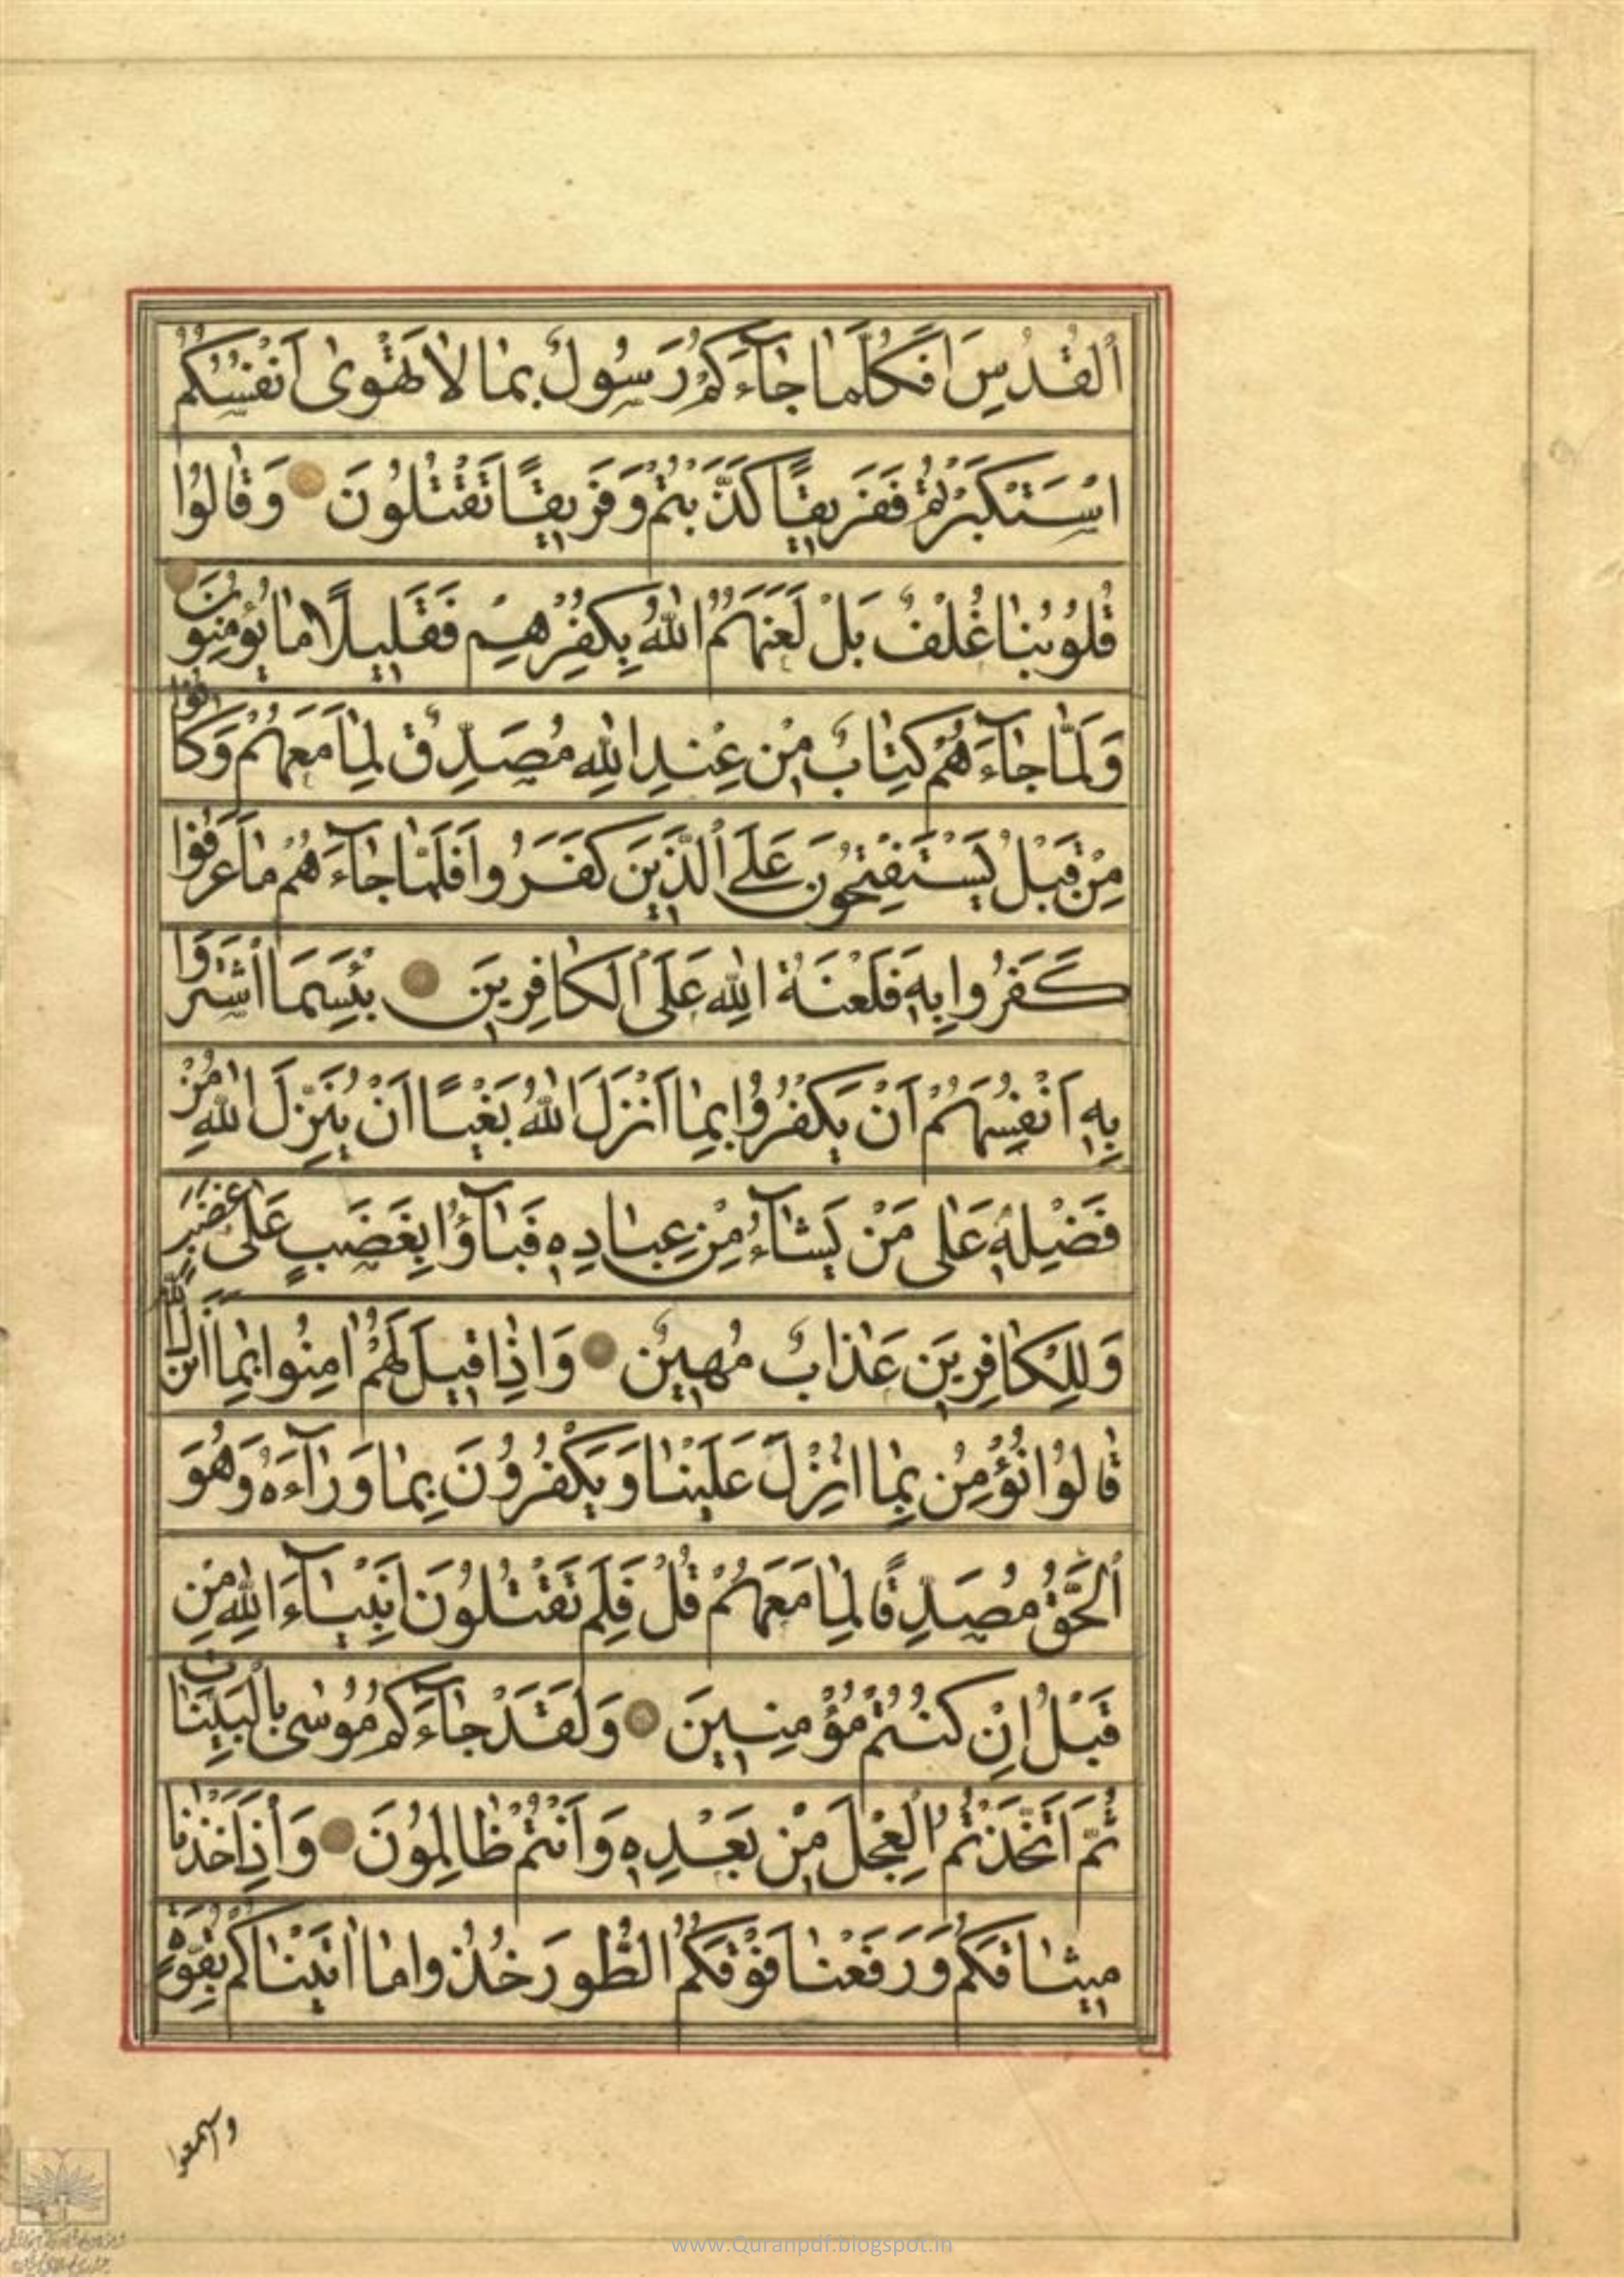 اَلْقُدُسِ اَفَكُلَّمٰا جٰآءَكُمْ رَسُولٌ بِمٰا لاٰ تَهْوٰى اَنْفُسُكُمُ
اسْتَكْبَرْتُمْ فَفَرِيقًا كَذَّبْتُمْ وَفَرِيقًا تَقْتُلُونَ وَقٰالُوا
قُلُوبُنٰا غُلْفٌ بَلْ لَعَنَهُمُ اللّٰهُ بِكُفْرِهِمْ فَقَلِيلًا مٰا يُؤْمِنُونَ
وَلَمّٰا جٰآءَهُمْ كِتٰابٌ مِنْ عِنْدِ اللّٰهِ مُصَدِّقٌ لِمٰا مَعَهُمْ وَكٰانُوا
مِنْ قَبْلُ يَسْتَفْتِحُونَ عَلَى الَّذِينَ كَفَرُوا فَلَمّٰا جٰآءَهُمْ مٰا عَرَفُوا
كَفَرُوا بِهِ فَلَعْنَةُ اللّٰهِ عَلَى الْكٰافِرِينَ بِئْسَمَا اشْتَرَوْا
بِهِ اَنْفُسَهُمْ اَنْ يَكْفُرُوا بِمٰا اَنْزَلَ اللّٰهُ بَغْيًا اَنْ يُنَزِّلَ اللّٰهُ مِنْ
فَضْلِهِ عَلٰى مَنْ يَشٰآءُ مِنْ عِبٰادِهِ فَبٰآؤُا بِغَضَبٍ عَلٰى غَضَبٍ
وَلِلْكٰافِرِينَ عَذٰابٌ مُهِينٌ وَاِذٰا قِيلَ لَهُمْ اٰمِنُوا بِمٰا اَنْزَلَ اللّٰهُ
قٰالُوا نُؤْمِنُ بِمٰا اُنْزِلَ عَلَيْنٰا وَيَكْفُرُونَ بِمٰا وَرٰآءَهُ وَهُوَ
اَلْحَقُّ مُصَدِّقًا لِمٰا مَعَهُمْ قُلْ فَلِمَ تَقْتُلُونَ اَنْبِيٰآءَ اللّٰهِ مِنْ
قَبْلُ اِنْ كُنْتُمْ مُؤْمِنِينَ وَلَقَدْ جٰآءَكُمْ مُوسٰى بِالْبَيِّنٰاتِ
ثُمَّ اتَّخَذْتُمُ الْعِجْلَ مِنْ بَعْدِهِ وَاَنْتُمْ ظٰالِمُونَ وَاِذْ اَخَذْنٰا
مِيثٰاقَكُمْ وَرَفَعْنٰا فَوْقَكُمُ الطُّورَ خُذُوا مٰا اٰتَيْنٰاكُمْ بِقُوَّةٍ
واسمعوا
www.Quranpdf.blogspot.in